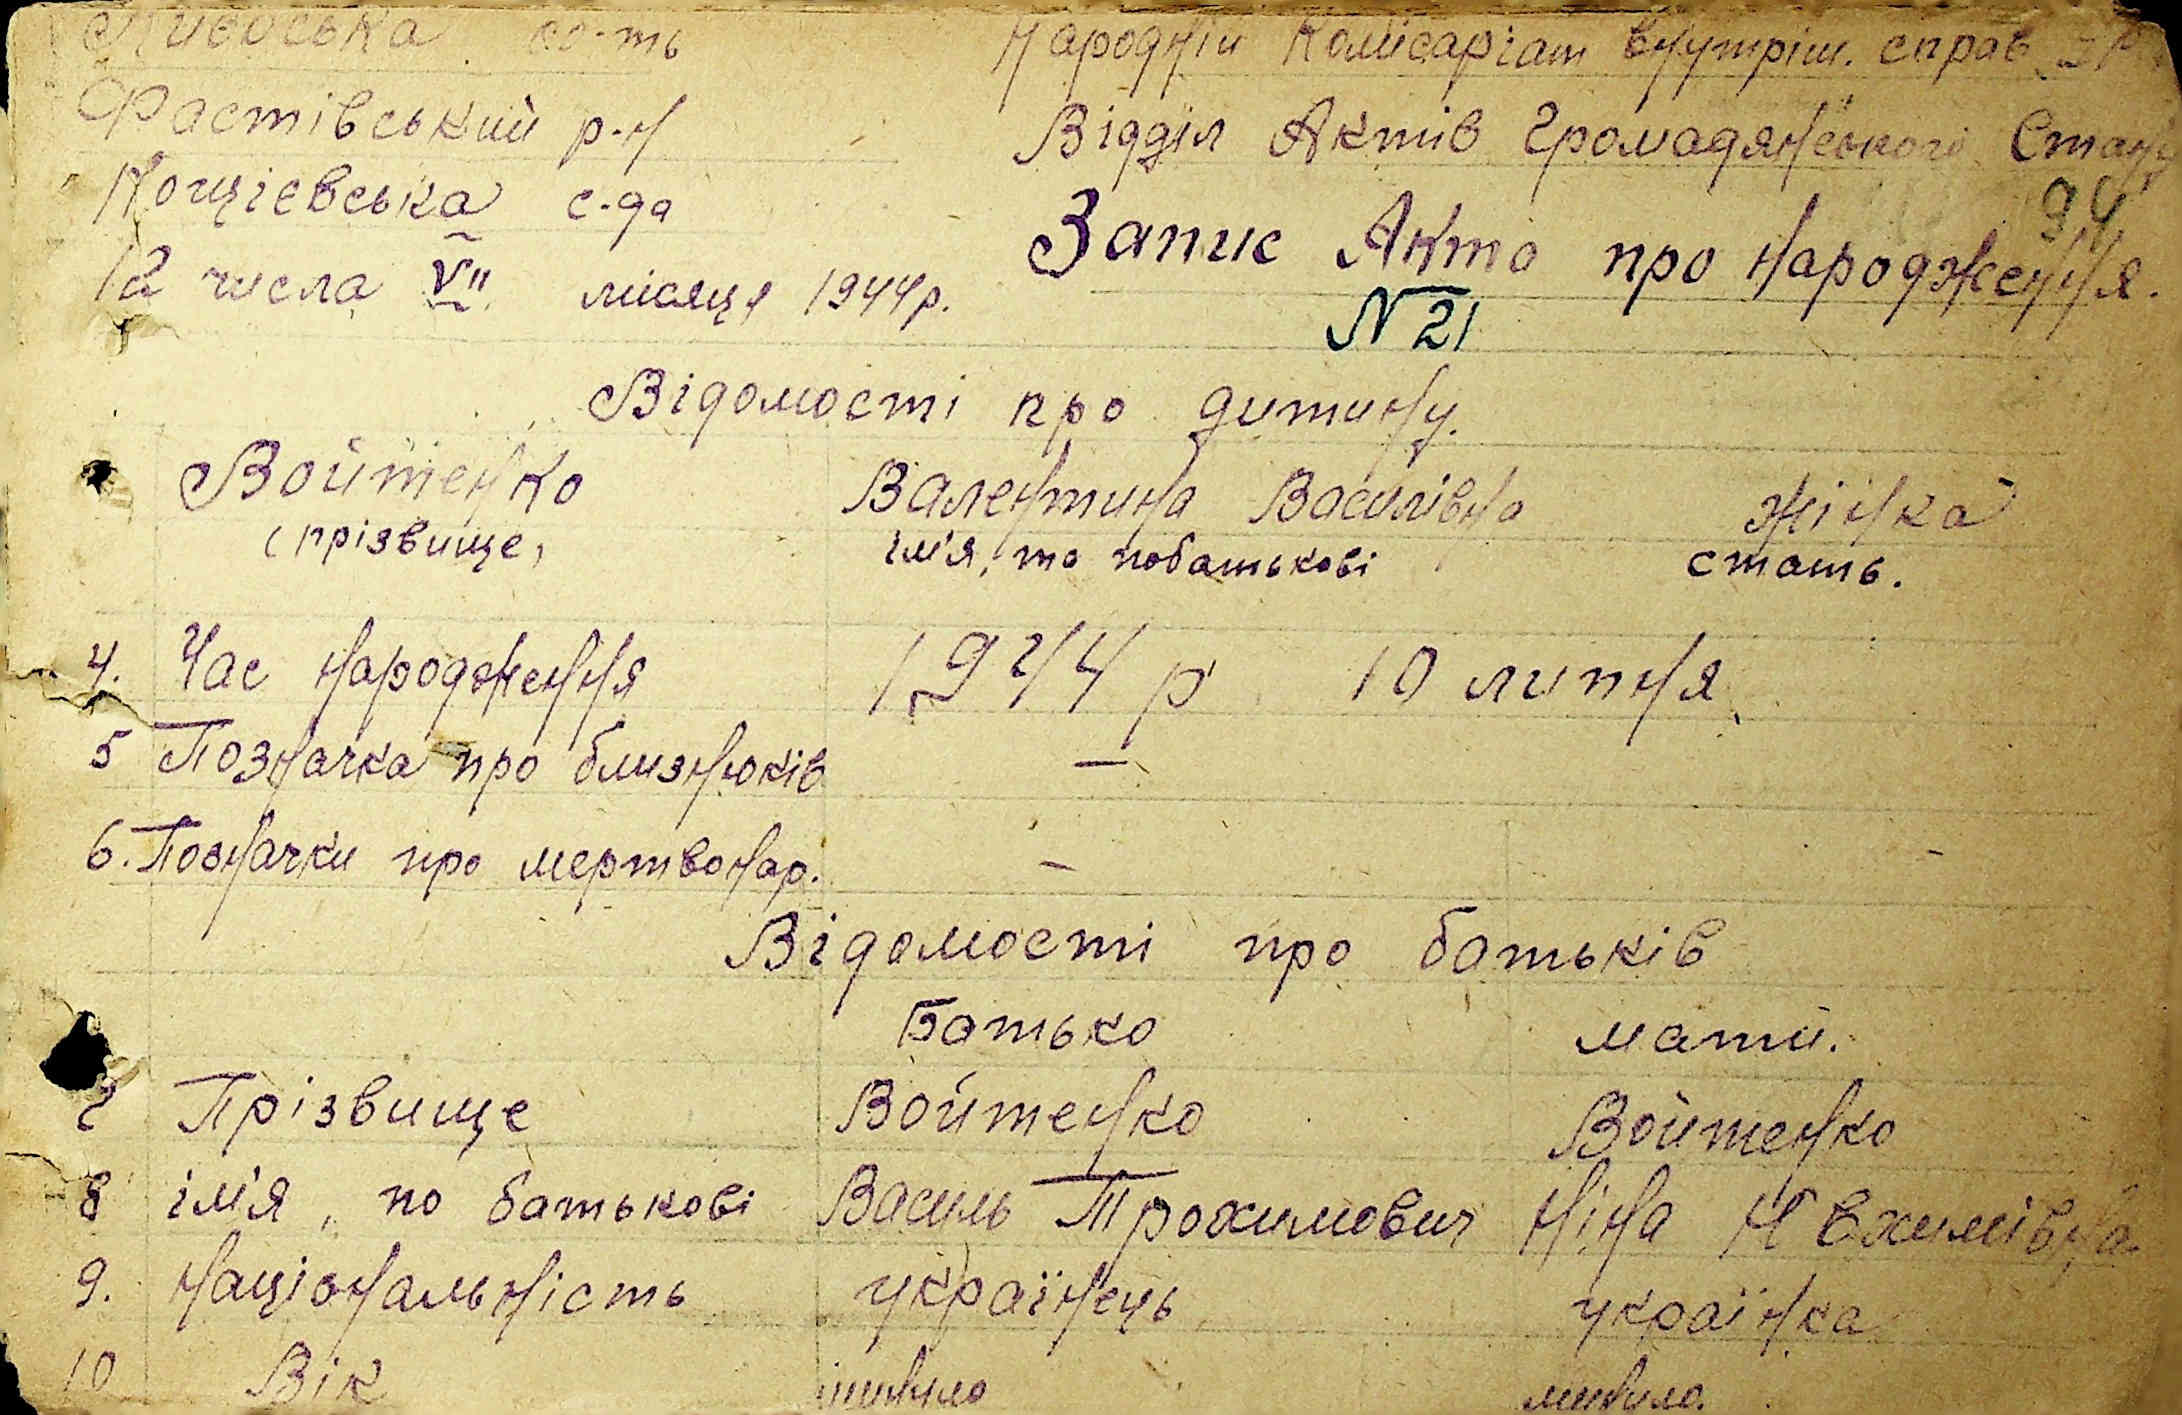 Київська об-ть
Народній Комісаріат внутріш. справ
Фастівський р-н
Відділ Актів Громадянського Стану
Кощіевська с-да
94
12 числа VII місяця 1944р.
Запис Акта про народження.
N 21
Відомості про дитину.
Войтенко Валентина Василівна жінка
(прізвище, ім'я, та побатькові стать.
4. Час народження 1944 р 10 липня
5 Позначка про близнюків —
6. Позначки про мертвонар. — -
Відомості про батьків
Батько мати.
7 Прізвище Войтенко Войтенко
8 ім'я, по батькові Василь Трохимович Ніна
9. Національність українець українка
10 Вік минуло минуло.